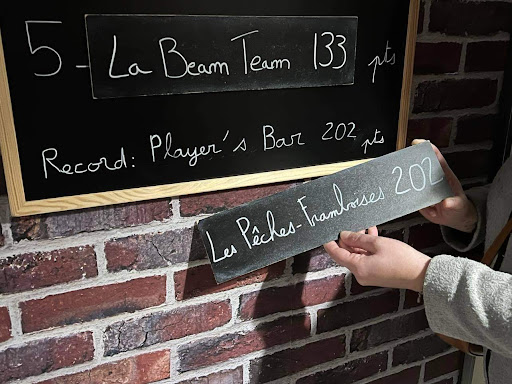 5 - La Beam Team 133 pts
Record: Player's Bar 202 pts
Les Pêches-Framboises 202